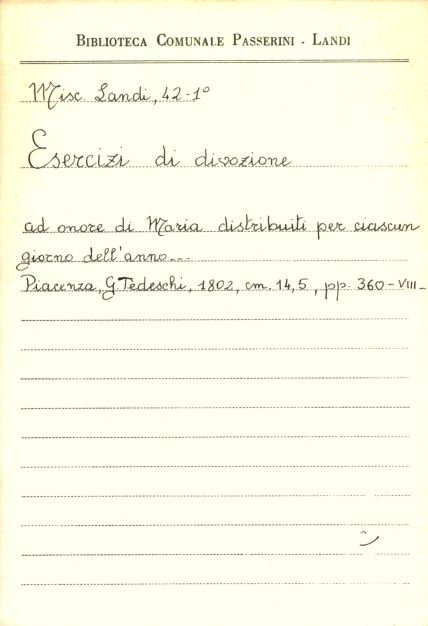 BIBLIOTECA COMUNALE PASSERINI - LANDI
Misc. Landi, 42-1°
Esercizi di divozione
ad onore di Maria distribuiti per ciascun
giorno dell'anno...
Piacenza, G. Tedeschi, 1802, cm. 14,5, pp. 360-VIII-